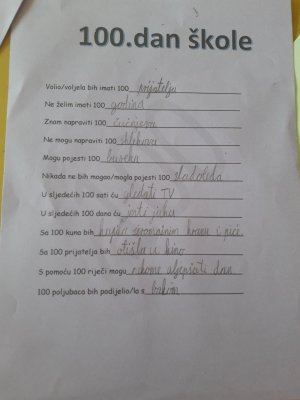 100.dan škole
Volio/voljela bih imati 100 prijatelja
Ne želim imati 100 godina
Znam napraviti 100 čučnjeva
Ne mogu napraviti 100 sklekova
Mogu pojesti 100
Nikada ne bih mogao/mogla pojesti 100 sladoleda
U sljedećih 100 sati ću gledati TV
U sljedećih 100 dana ću jesti
Sa 100 kuna bih kupila siromašnim hranu i piće
Sa 100 prijatelja bih otišla u kino
S pomoću 100 riječi mogu nekome uljepšati dan
100 poljubaca bih podijelio/la s bakom